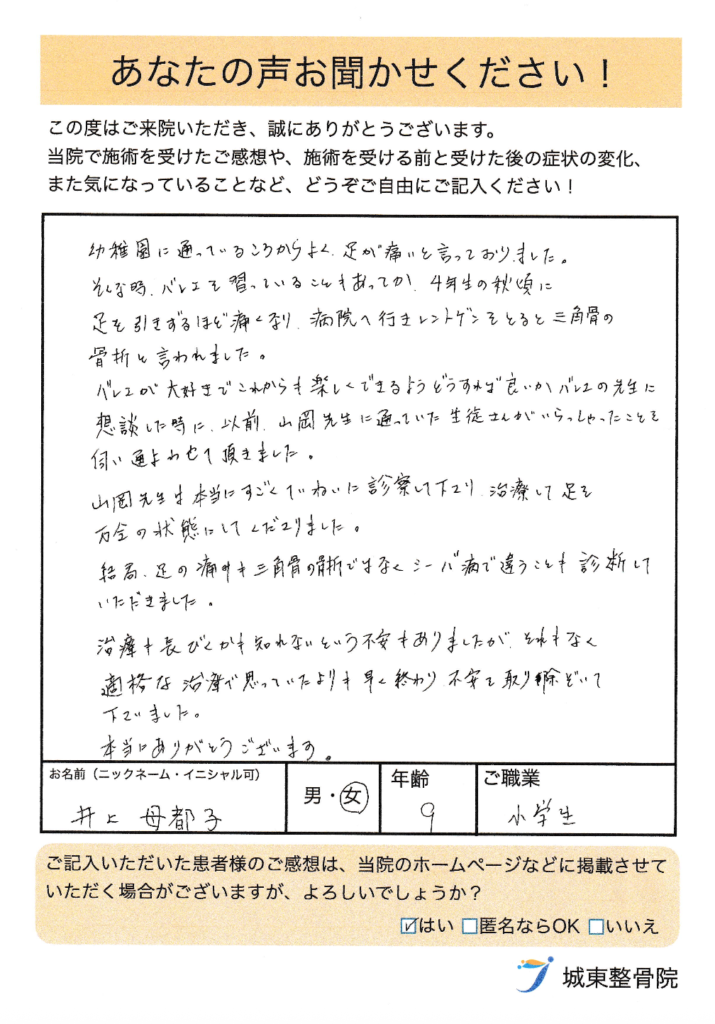 あなたの声お聞かせください！
この度はご来院いただき、誠にありがとうございます。
当院で施術を受けたご感想や、施術を受ける前と受けた後の症状の変化、
また気になっていることなど、どうぞご自由にご記入ください！
幼稚園に通っているころからよく、足が痛いと言っておりました。
そんな時、バレエを習っていることもあってか、4年生の秋頃に
足を引きずるほど痛くなり、病院へ行きレントゲンをとると三角骨の
骨折と言われました。
バレエが大好きでこれからも楽しくできるようどうすれば良いかバレエの先生に
想談した時に、以前、山岡先生に通っていた生徒さんがいらっしゃったことを
伺い通よわせて頂きました。
山岡先生は本当にすごくていねいに診察して下さり、治療して足を
万全の状態にしてくださりました。
結局、足の痛みも三角骨の骨折ではなくシーバ病で違うことも診断して
いただきました。
治療も長びくかも知れないという不安もありましたが、それもなく
適格な治療で思っていたよりも早く終わり、不安を取り除ぞいて
下さいました。
本当にありがとうございます。
お名前（ニックネーム・イニシャル可）
男・女
年齢
ご職業
井上 母都子
9
小学生
ご記入いただいた患者様のご感想は、当院のホームページなどに掲載させて
いただく場合がございますが、よろしいでしょうか？
☑はい □匿名ならOK □いいえ
城東整骨院